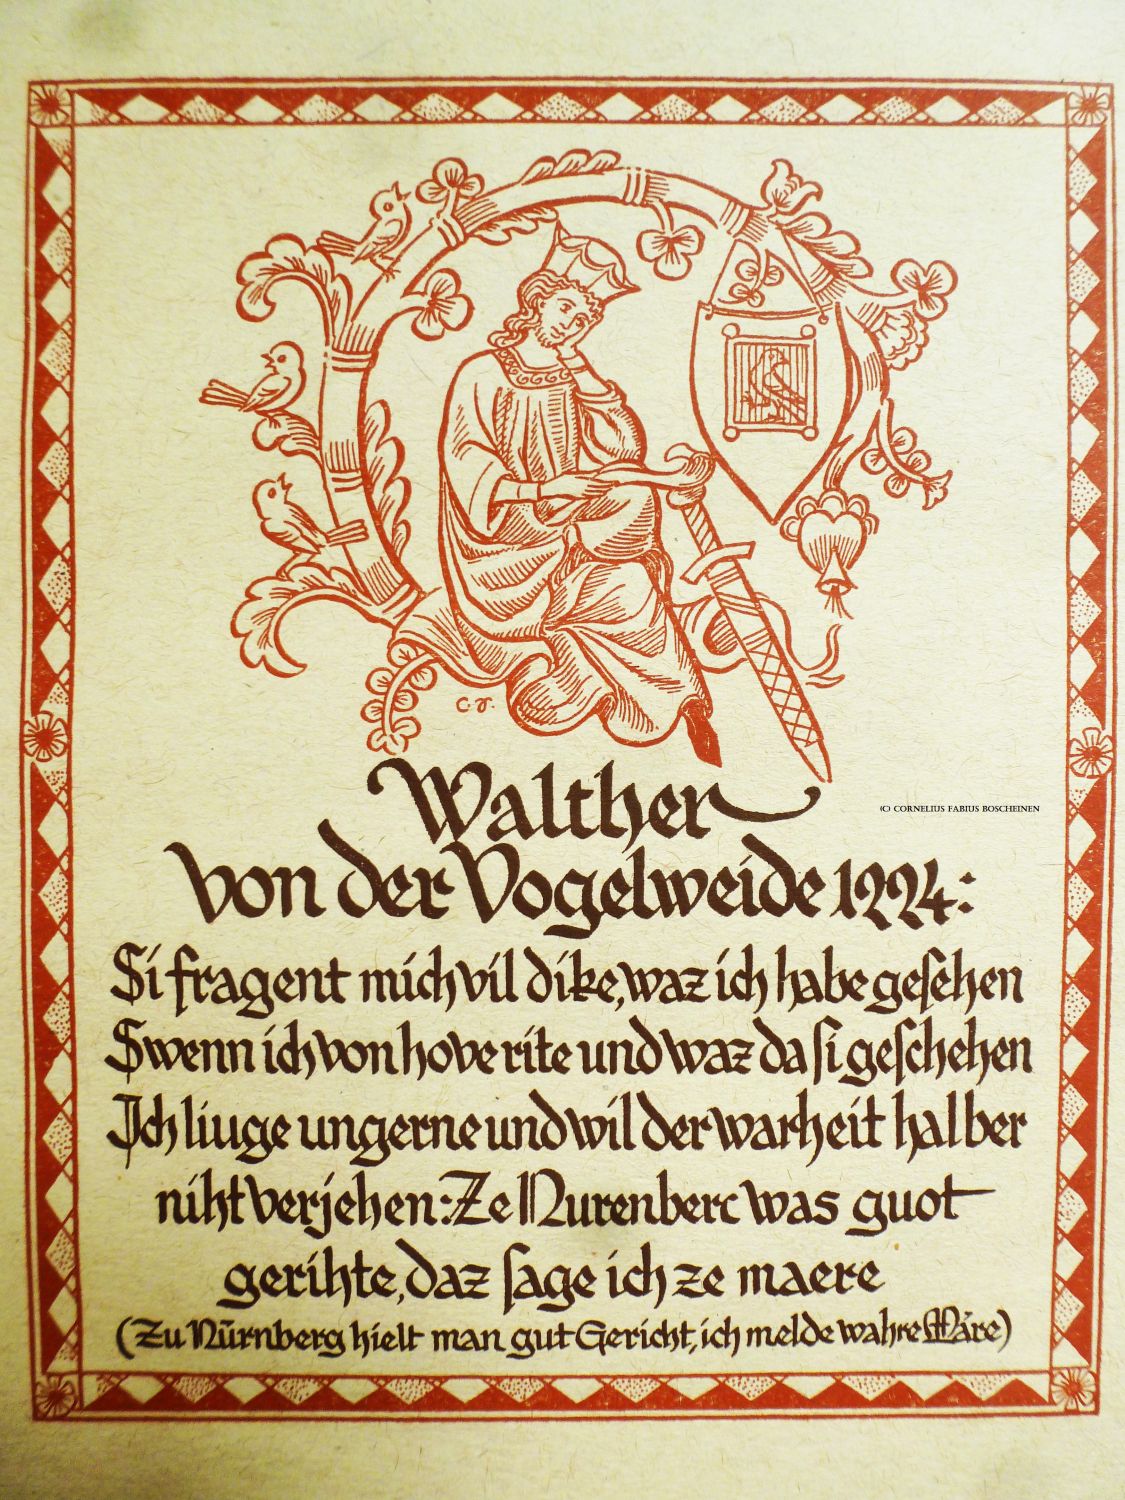 C. V.
Walther
(C) CORNELIUS FABIUS BOSCHEINEN
von der Vogelweide 1224:
Si fragent mich vil dike, waz ich habe geſehen
Swenn ich von hove rite und waz da ſi geſchehen
Ich liuge ungerne und wil der warheit halber
niht verjehen: Ze Nurenberc was guot
gerihte, daz ſage ich ze maere
(Zu Nürnberg hielt man gut Gericht, ich melde wahre Märe)